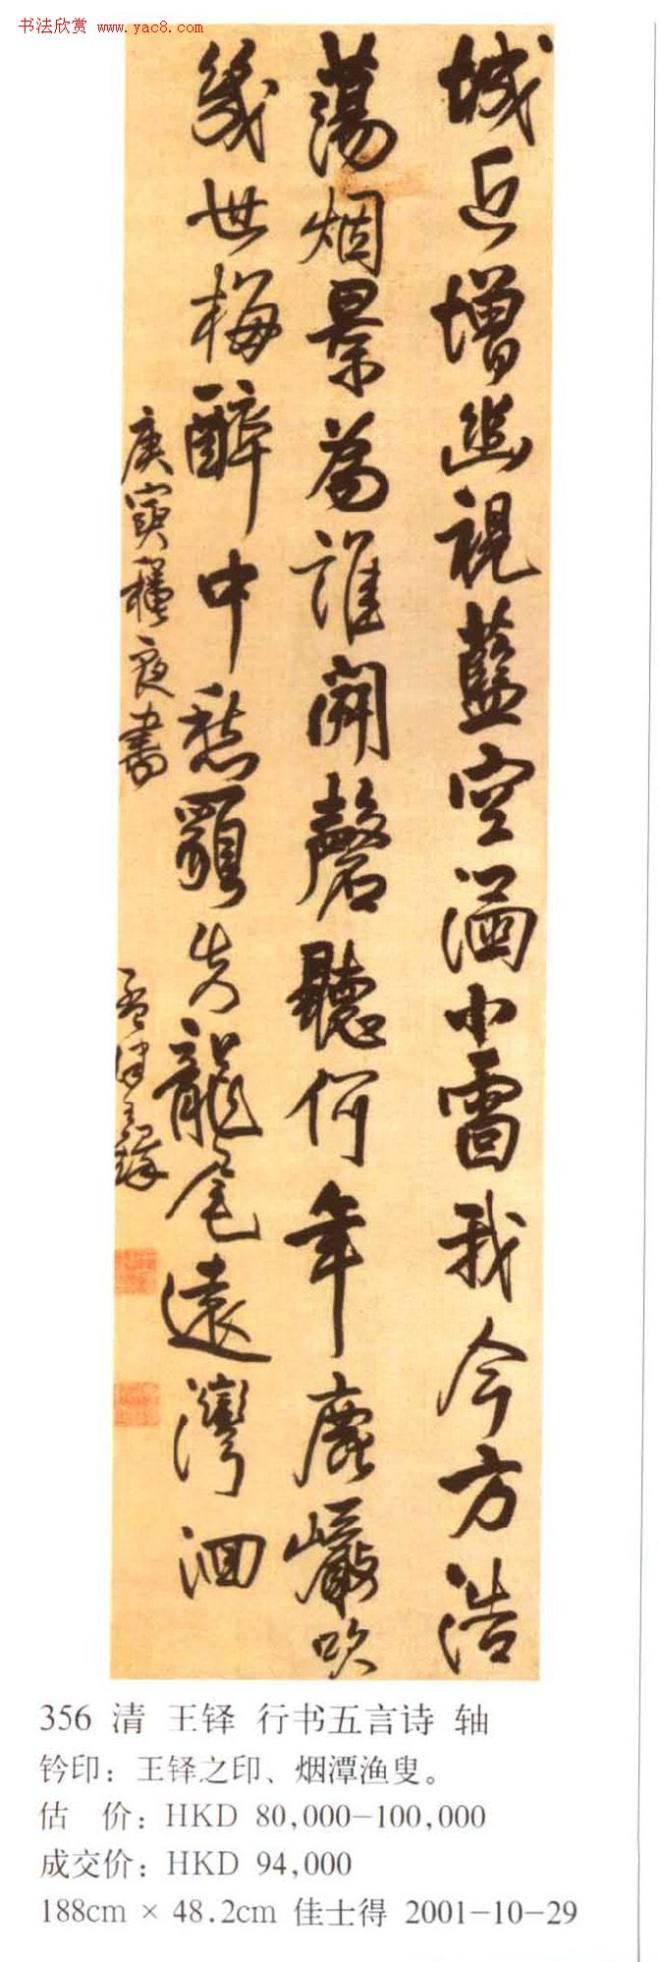 书法欣赏 www.yac8.com
城近增幽視藍空湎小雷我今方浩
蕩烟景為誰開磬聽何年鹿巖吹
幾世梅醉中愁顧失龍尾遠灣洄
庚寅夜書
孟津王鐸
356 清 王铎 行书五言诗 轴
钤印：王铎之印、烟潭渔叟。
估 价：HKD 80,000-100,000
成交价：HKD 94,000
188cm × 48.2cm 佳士得 2001-10-29